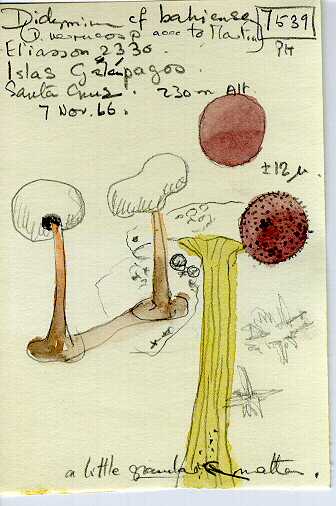 Didymium cf bahiense 7539
(D. verrucosp accc to Martin) PH
Eliasson 2330.
Islas Galápagos.
Santa Cruz. 230 m Alt
7 Nov. 66.
±12 µ
a little granular matter.